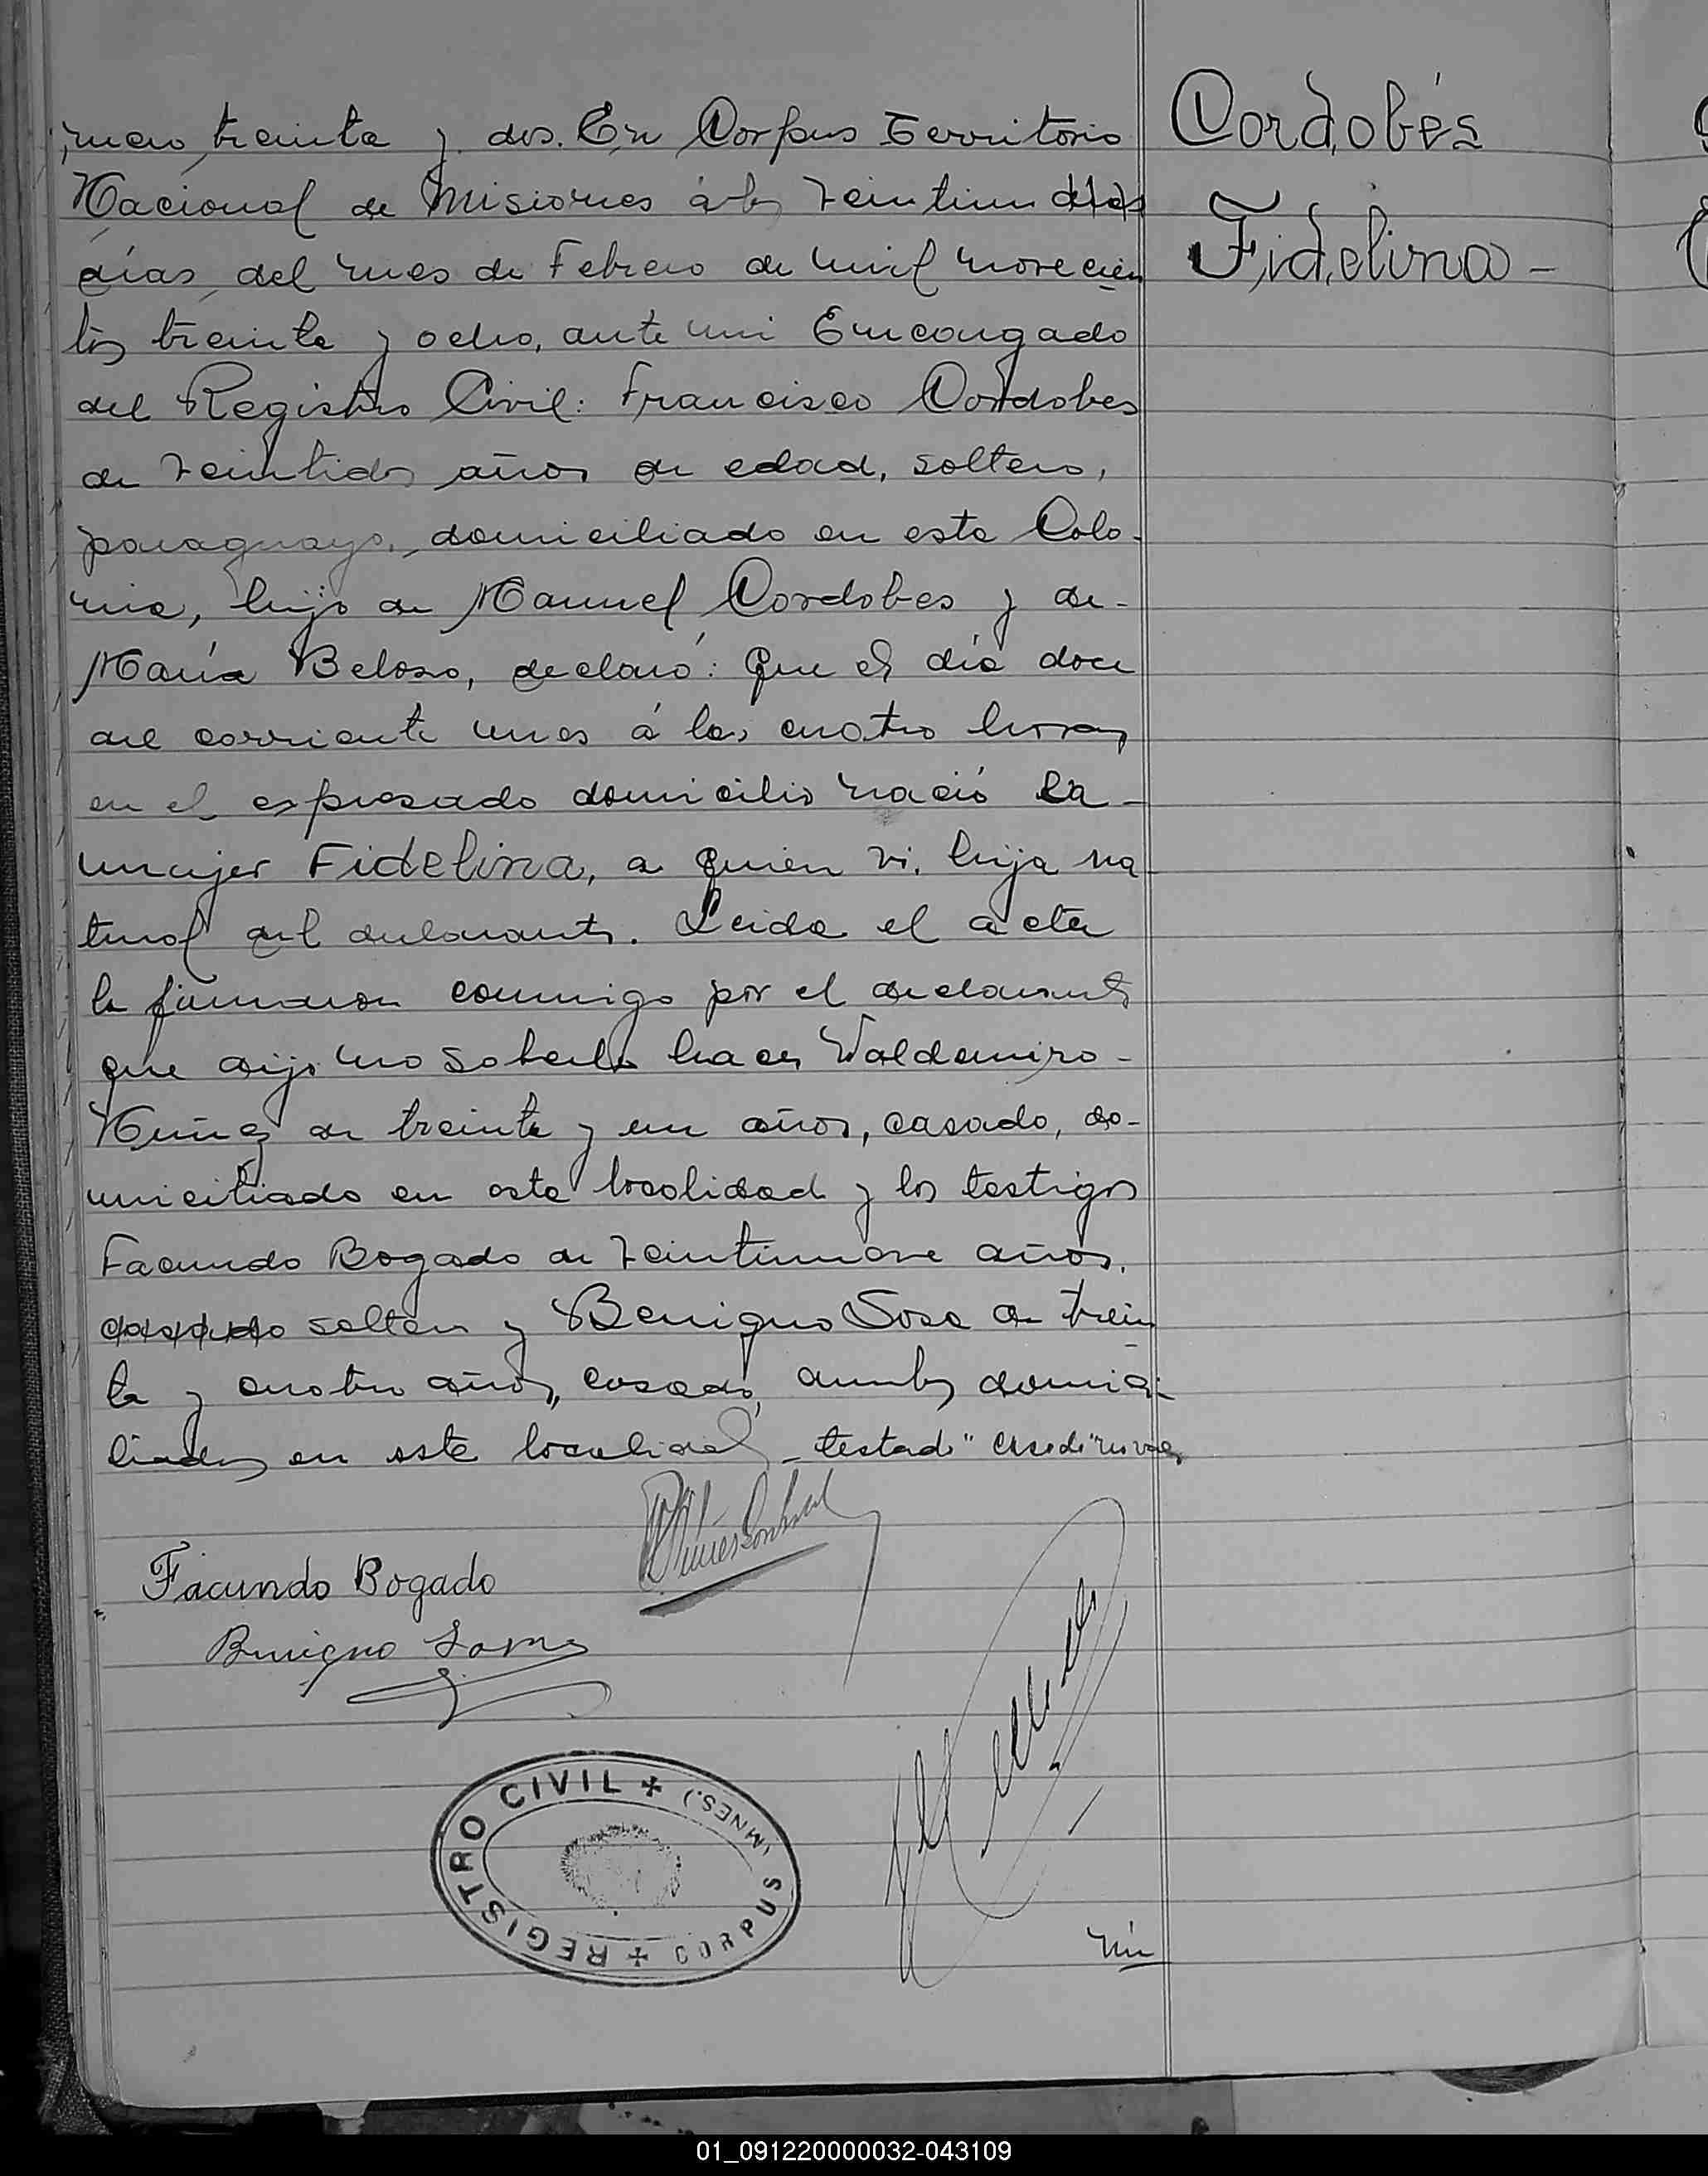 mero treinta y dos. En Corpus Territorio
Nacional de Misiones á los veintiun dias
días, del mes de Febrero de mil novecien
tos treinta y ocho, ante mi Encargado
del Registro Civil: Francisco Cordobes
de veintidos años de edad, soltero,
paraguayo, domiciliado en esta Colo-
nia, hijo de Manuel Cordobes y de-
María Beloso, declaró: Que el día doce
del corriente mes á las cuatro horas
en el expresado domicilio nació la-
mujer Fidelina, a quien vi, hija na
tural del declarante. Leida el acta
la firmaron conmigo por el declarante
que dijo no saberlo hacer Valdemiro-
Nuñez de treinta y un años, casado, do-
miciliado en esta localidad y los testigos
Facundo Bogado de veintinueve años,
casado soltero y Benigno Sosa de trein
ta y cuatro años, casado, ambos domici-
liados en esta localidad - testado "casado" no vale
Facundo Bogado
Benigno Sosa
REGISTRO CIVIL
CORPUS (MNES.)
Cordobés
Fidelina -
01_091220000032-043109